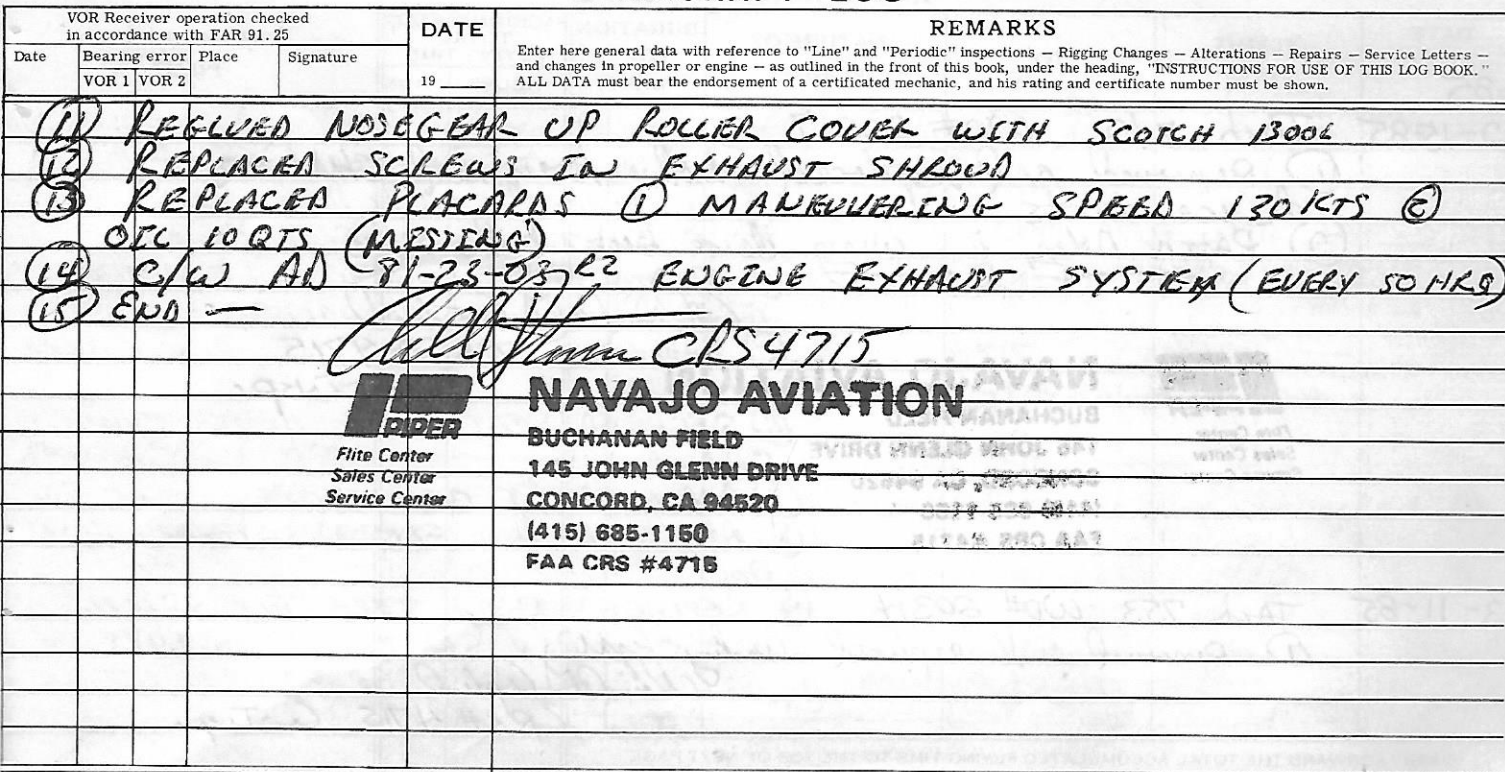 VOR Receiver operation checked
in accordance with FAR 91.25
DATE
REMARKS
Date
Bearing error
Place
Signature
VOR 1
VOR 2
19
Enter here general data with reference to "Line" and "Periodic" inspections — Rigging Changes — Alterations — Repairs — Service Letters —
and changes in propeller or engine — as outlined in the front of this book, under the heading, "INSTRUCTIONS FOR USE OF THIS LOG BOOK."
ALL DATA must bear the endorsement of a certificated mechanic, and his rating and certificate number must be shown.
(11) REGLUED NOSEGEAR UP ROLLER COVER WITH SCOTCH 1300L
(12) REPLACED SCREWS IN EXHAUST SHROUD
(13) REPLACED PLACARDS (1) MANEUVERING SPEED 130 KTS (2)
OIL 10 QTS (MISSING)
(14) C/W AD 81-23-03 R2 ENGINE EXHAUST SYSTEM (EVERY 50 HRS)
(15) END —
CRS 4715
PIPER
Flite Center
Sales Center
Service Center
NAVAJO AVIATION
BUCHANAN FIELD
145 JOHN GLENN DRIVE
CONCORD, CA 94520
(415) 685-1150
FAA CRS #4715